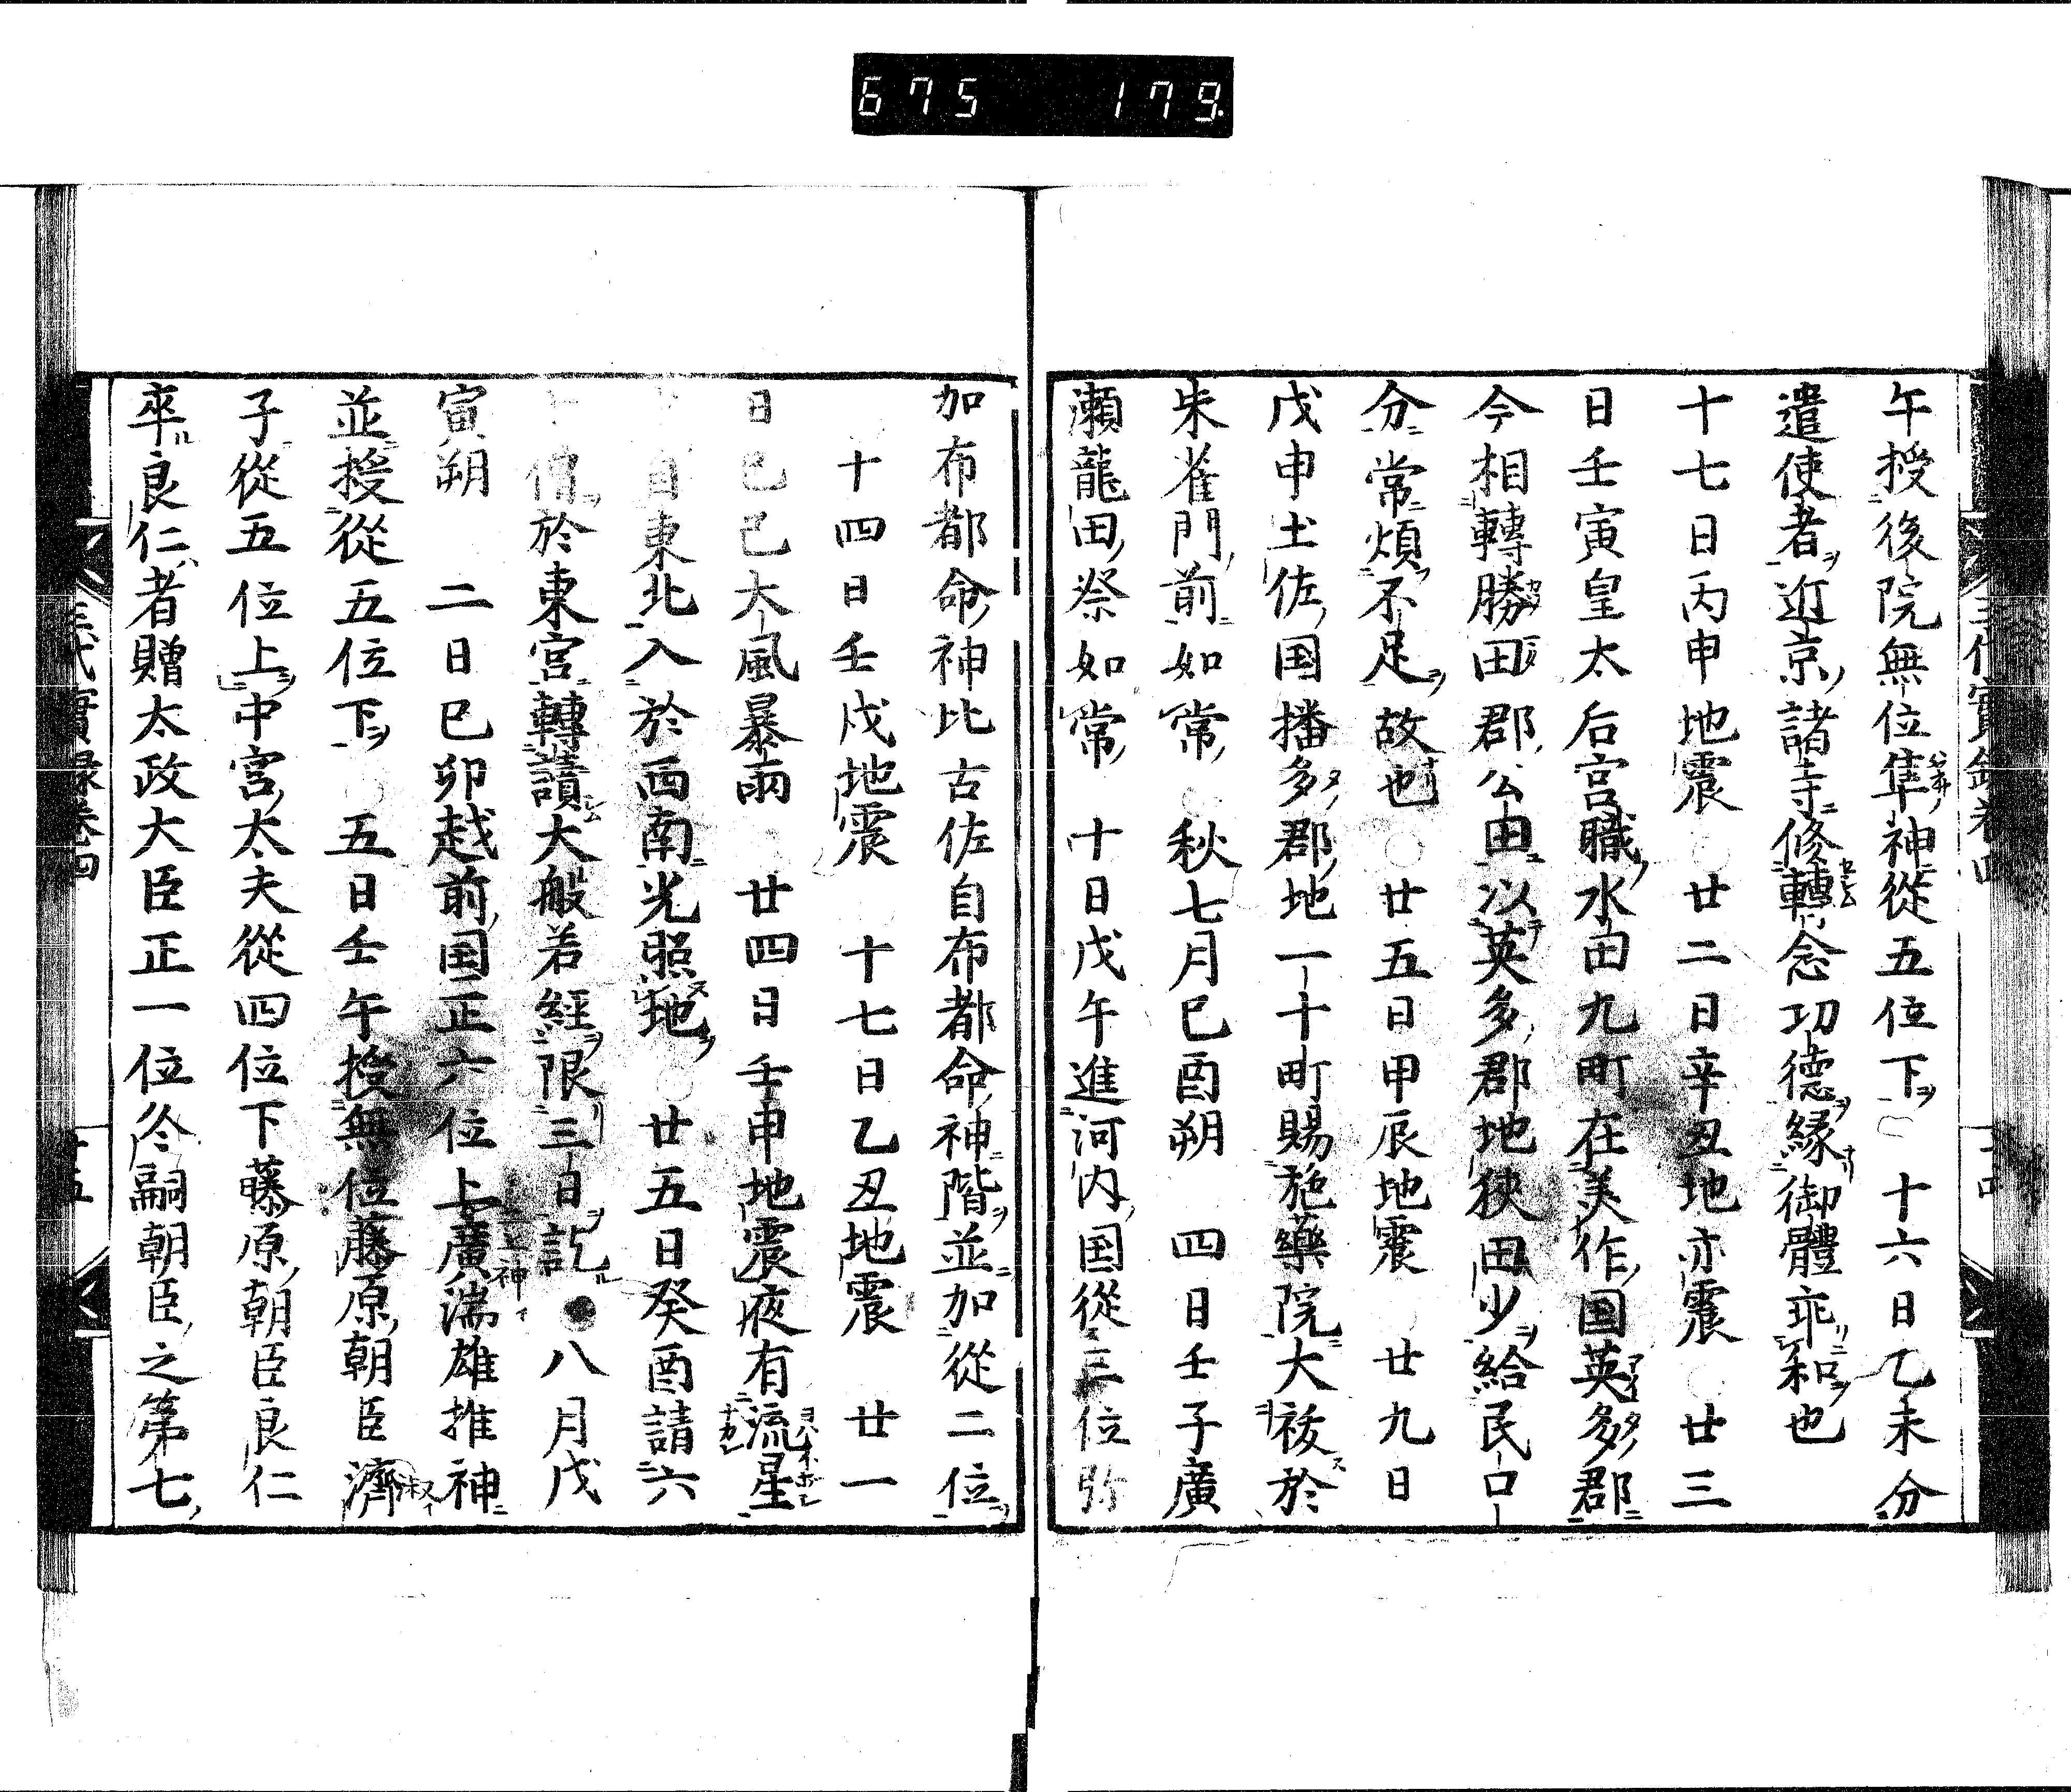 675 179
午授後院無位隼神從五位下 十六日乙未分
遣使者近京諸寺修轉念功德縁御體乖和也
十七日丙申地震○廿二日辛丑地亦震○廿三
日壬寅皇太后宮職水田九町在美作国英多郡
今相轉勝田郡公田以英多郡地狹田少給民口
分常煩不足故也○廿五日甲辰地震○廿九日
戊申土佐国播多郡地一十町賜施藥院大祓於
朱雀門前如常○秋七月己酉朔 四日壬子廣
瀬龍田祭如常 十日戊午進河内国從三位弥
加布都命神比古佐自布都命神階並加從二位
十四日壬戌地震 十七日乙丑地震 廿一
日己巳大風暴雨 廿四日壬申地震夜有流星
自東北入於西南光照地○廿五日癸酉請六
十僧於東宮轉讀大般若經限三日訖●八月戊
寅朔 二日己卯越前国正六位上廣湍雄推神
並授從五位下○五日壬午授無位藤原朝臣濟
子從五位上中宮太夫從四位下藤原朝臣良仁
卒良仁者贈太政大臣正一位冬嗣朝臣之第七
三代實録卷四